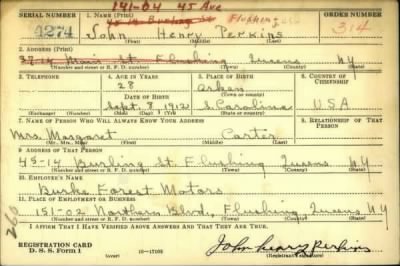 141-04 45 Ave
SERIAL NUMBER 1. NAME (Print) Flushing ORDER NUMBER
1274 John Henry Perkins 314
(First) (Middle) (Last)
2. ADDRESS (Print)
37-14 Main St. Flushing Queens NY
(Number and street or R. F. D. number) (Town) (County) (State)
3. TELEPHONE 4. AGE IN YEARS 5. PLACE OF BIRTH 6. COUNTRY OF CITIZENSHIP
28 Aiken
DATE OF BIRTH (Town or county)
Sept. 8 1912 S. Carolina USA
(Exchange) (No.) (Mo.) (Day) (Yr.) (State or country)
7. NAME OF PERSON WHO WILL ALWAYS KNOW YOUR ADDRESS 8. RELATIONSHIP OF THAT PERSON
Mrs. Margaret Carter
(Mr., Mrs., Miss) (First) (Middle) (Last)
9. ADDRESS OF THAT PERSON
45-14 Burling St. Flushing Queens NY
(Number and street or R. F. D. number) (Town) (County) (State)
10. EMPLOYER'S NAME
Burke Forest Motors
11. PLACE OF EMPLOYMENT OR BUSINESS
151-02 Northern Blvd, Flushing, Queens NY
(Number and street or R. F. D. number) (Town) (County) (State)
I AFFIRM THAT I HAVE VERIFIED ABOVE ANSWERS AND THAT THEY ARE TRUE.
REGISTRATION CARD
D. S. S. Form 1 (over) 16-17105 John Henry Perkins
(Registrant's signature)